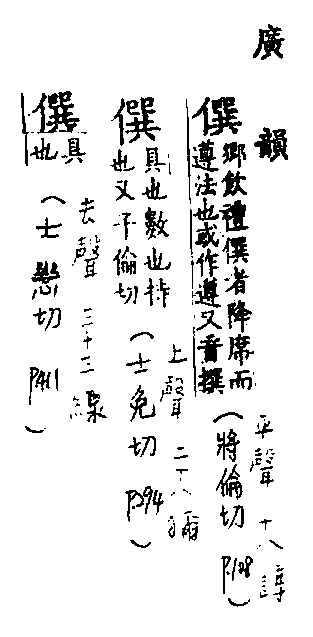 廣韻
僎鄉飲禮僎者降席而
遵法也或作遵又音撰
(將倫切 P.108)
平聲 十八諄
僎具也數也持
也又子倫切
(士免切 P.294)
上聲 二十八獮
僎具
也
(士戀切 P411)
去聲 三十三線